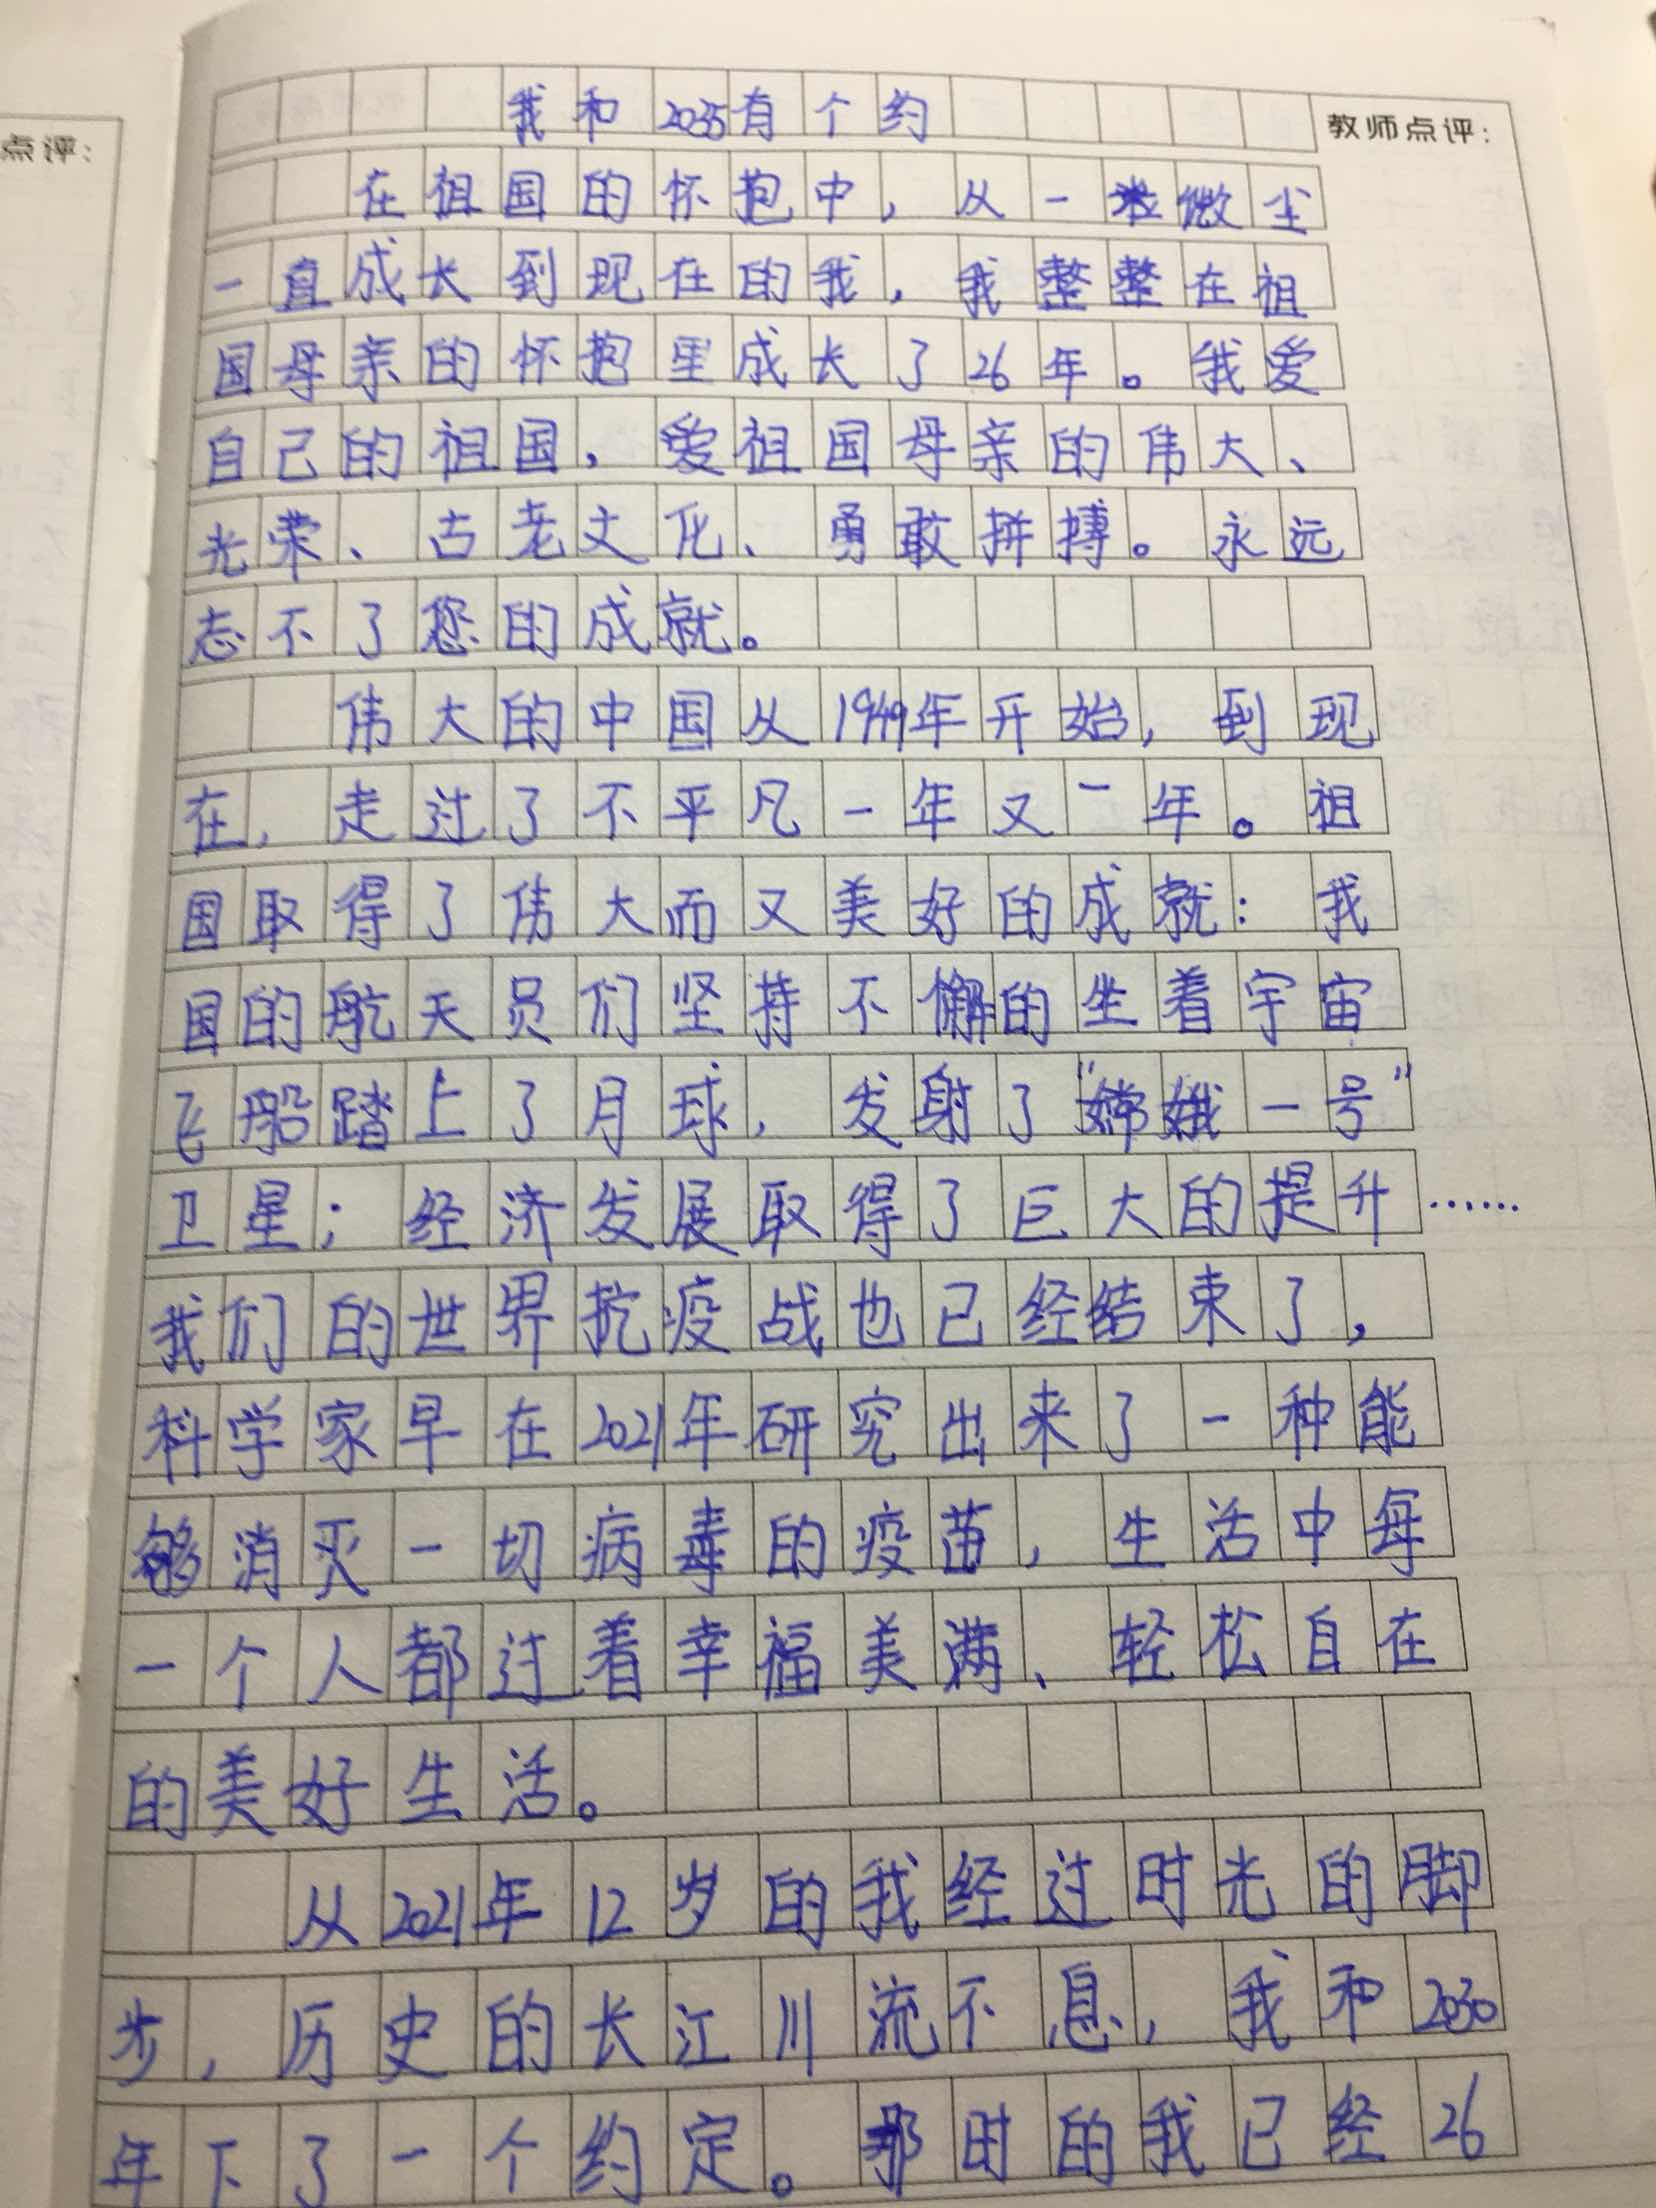 点评：
教师点评：
我和2035有个约
在祖国的怀抱中，从一粒微尘
一直成长到现在的我，我整整在祖
国母亲的怀抱里成长了26年。我爱
自己的祖国，爱祖国母亲的伟大、
光荣、古老文化、勇敢拼搏。永远
忘不了您的成就。
伟大的中国从1949年开始，到现
在，走过了不平凡一年又一年。祖
国取得了伟大而又美好的成就：我
国的航天员们坚持不懈的坐着宇宙
飞船踏上了月球，发射了“嫦娥一号”
卫星；经济发展取得了巨大的提升……
我们的世界抗疫战也已经结束了，
科学家早在2021年研究出来了一种能
够消灭一切病毒的疫苗，生活中每
一个人都过着幸福美满、轻松自在
的美好生活。
从2021年12岁的我经过时光的脚
步，历史的长江川流不息，我和2030
年下了一个约定。那时的我已经26